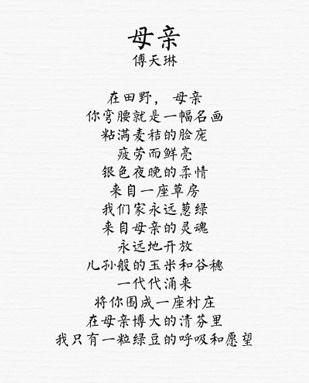 母亲
傅天琳
在田野，母亲
你弯腰就是一幅名画
粘满麦秸的脸庞
疲劳而鲜亮
银色夜晚的柔情
来自一座草房
我们家永远葱绿
来自母亲的灵魂
永远地开放
儿孙般的玉米和谷穗
一代代涌来
将你围成一座村庄
在母亲博大的清芬里
我只有一粒绿豆的呼吸和愿望